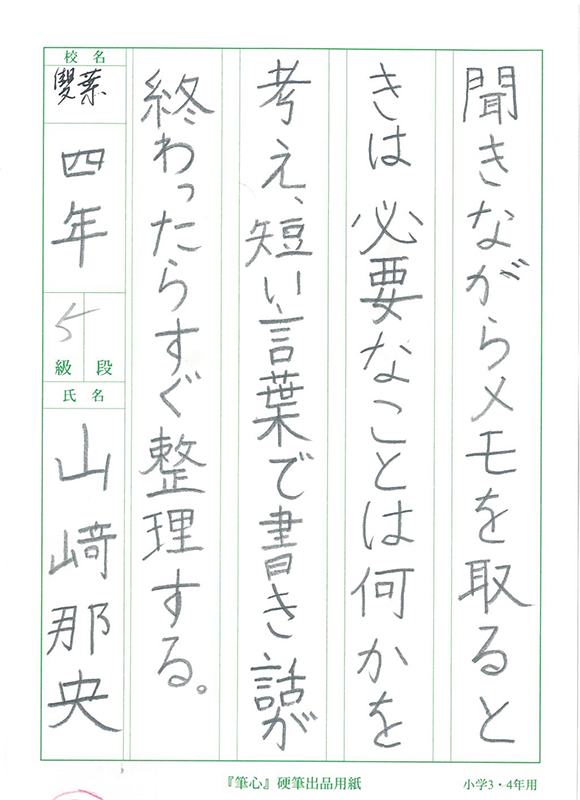 聞きながらメモを取ると
きは必要なことは何かを
考え、短い言葉で書き話が
終わったらすぐ整理する。
校名
雙葉
四年
5
級 段
氏名
山﨑那央
『筆心』硬筆出品用紙
小学3・4年用